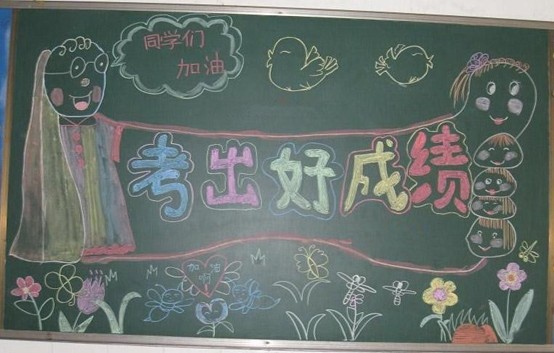 同学们
加油
考出好成绩
加油
啊!